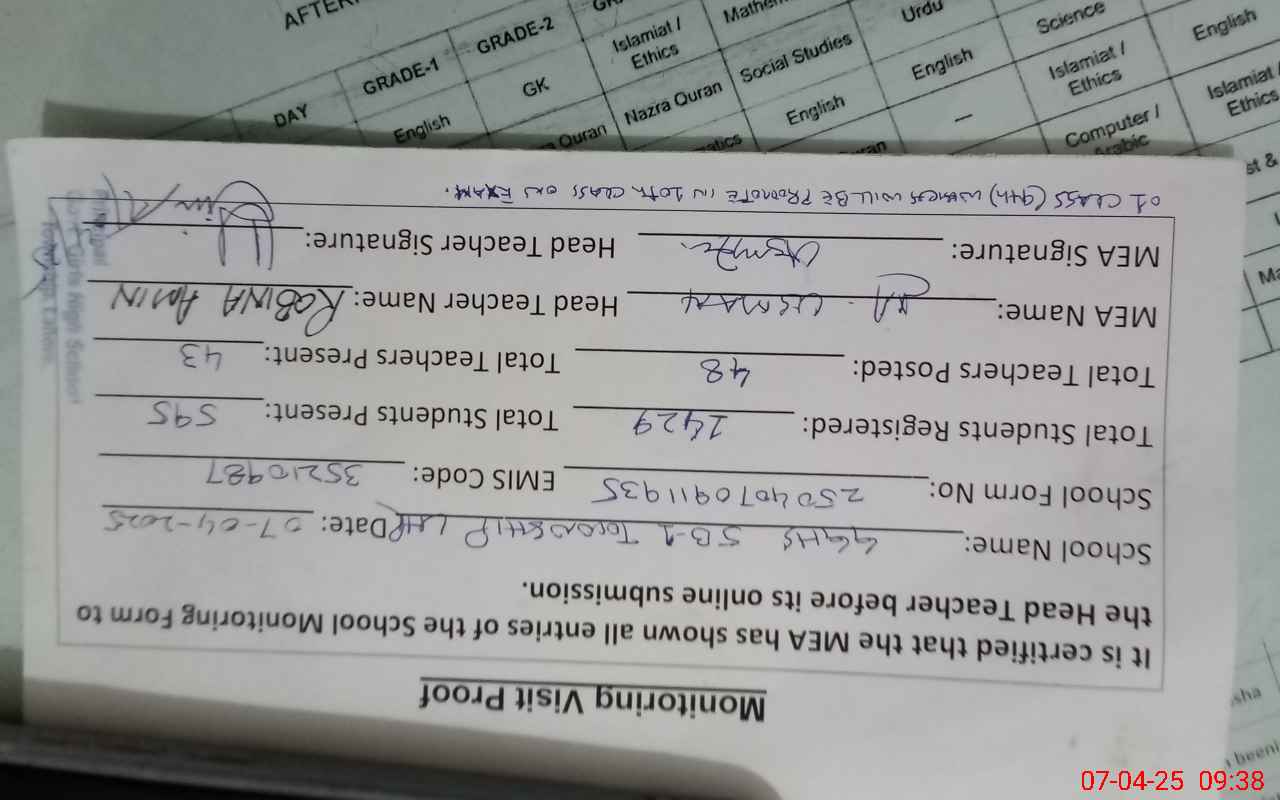 Monitoring Visit Proof
It is certified that the MEA has shown all entries of the School Monitoring Form to
the Head Teacher before its online submission.
School Name: GGHS 5B-1 TOWNSHIP LHR Date: 07-04-2025
School Form No: 2504070911935 EMIS Code: 35210987
Total Students Registered: 1429 Total Students Present: 595
Total Teachers Posted: 48 Total Teachers Present: 43
MEA Name: USMAN Head Teacher Name: ROBINA AMIN
MEA Signature: Head Teacher Signature:
01 CLASS (9th) WHICH WILL BE PROMOTE IN 10th CLASS ON EXAM.
Principal
Govt. Girls High School
Township Lahore.
AFTER
DAY GRADE-1 GRADE-2
English GK Islamiat / Ethics
Quran Nazra Quran Social Studies Urdu Science English
English English Islamiat / Ethics
— Computer / Arabic Islamiat / Ethics
07-04-25 09:38